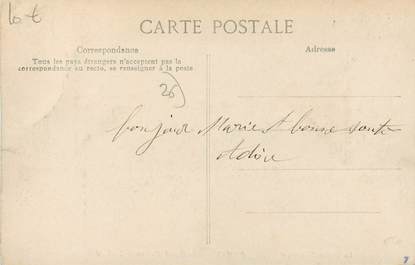 10 €
CARTE POSTALE
Correspondance
Adresse
Tous les pays étrangers n'acceptent pas la
correspondance au recto, se renseigner à la poste
26)
bonjour Marie & bonne santé
Adèle
7